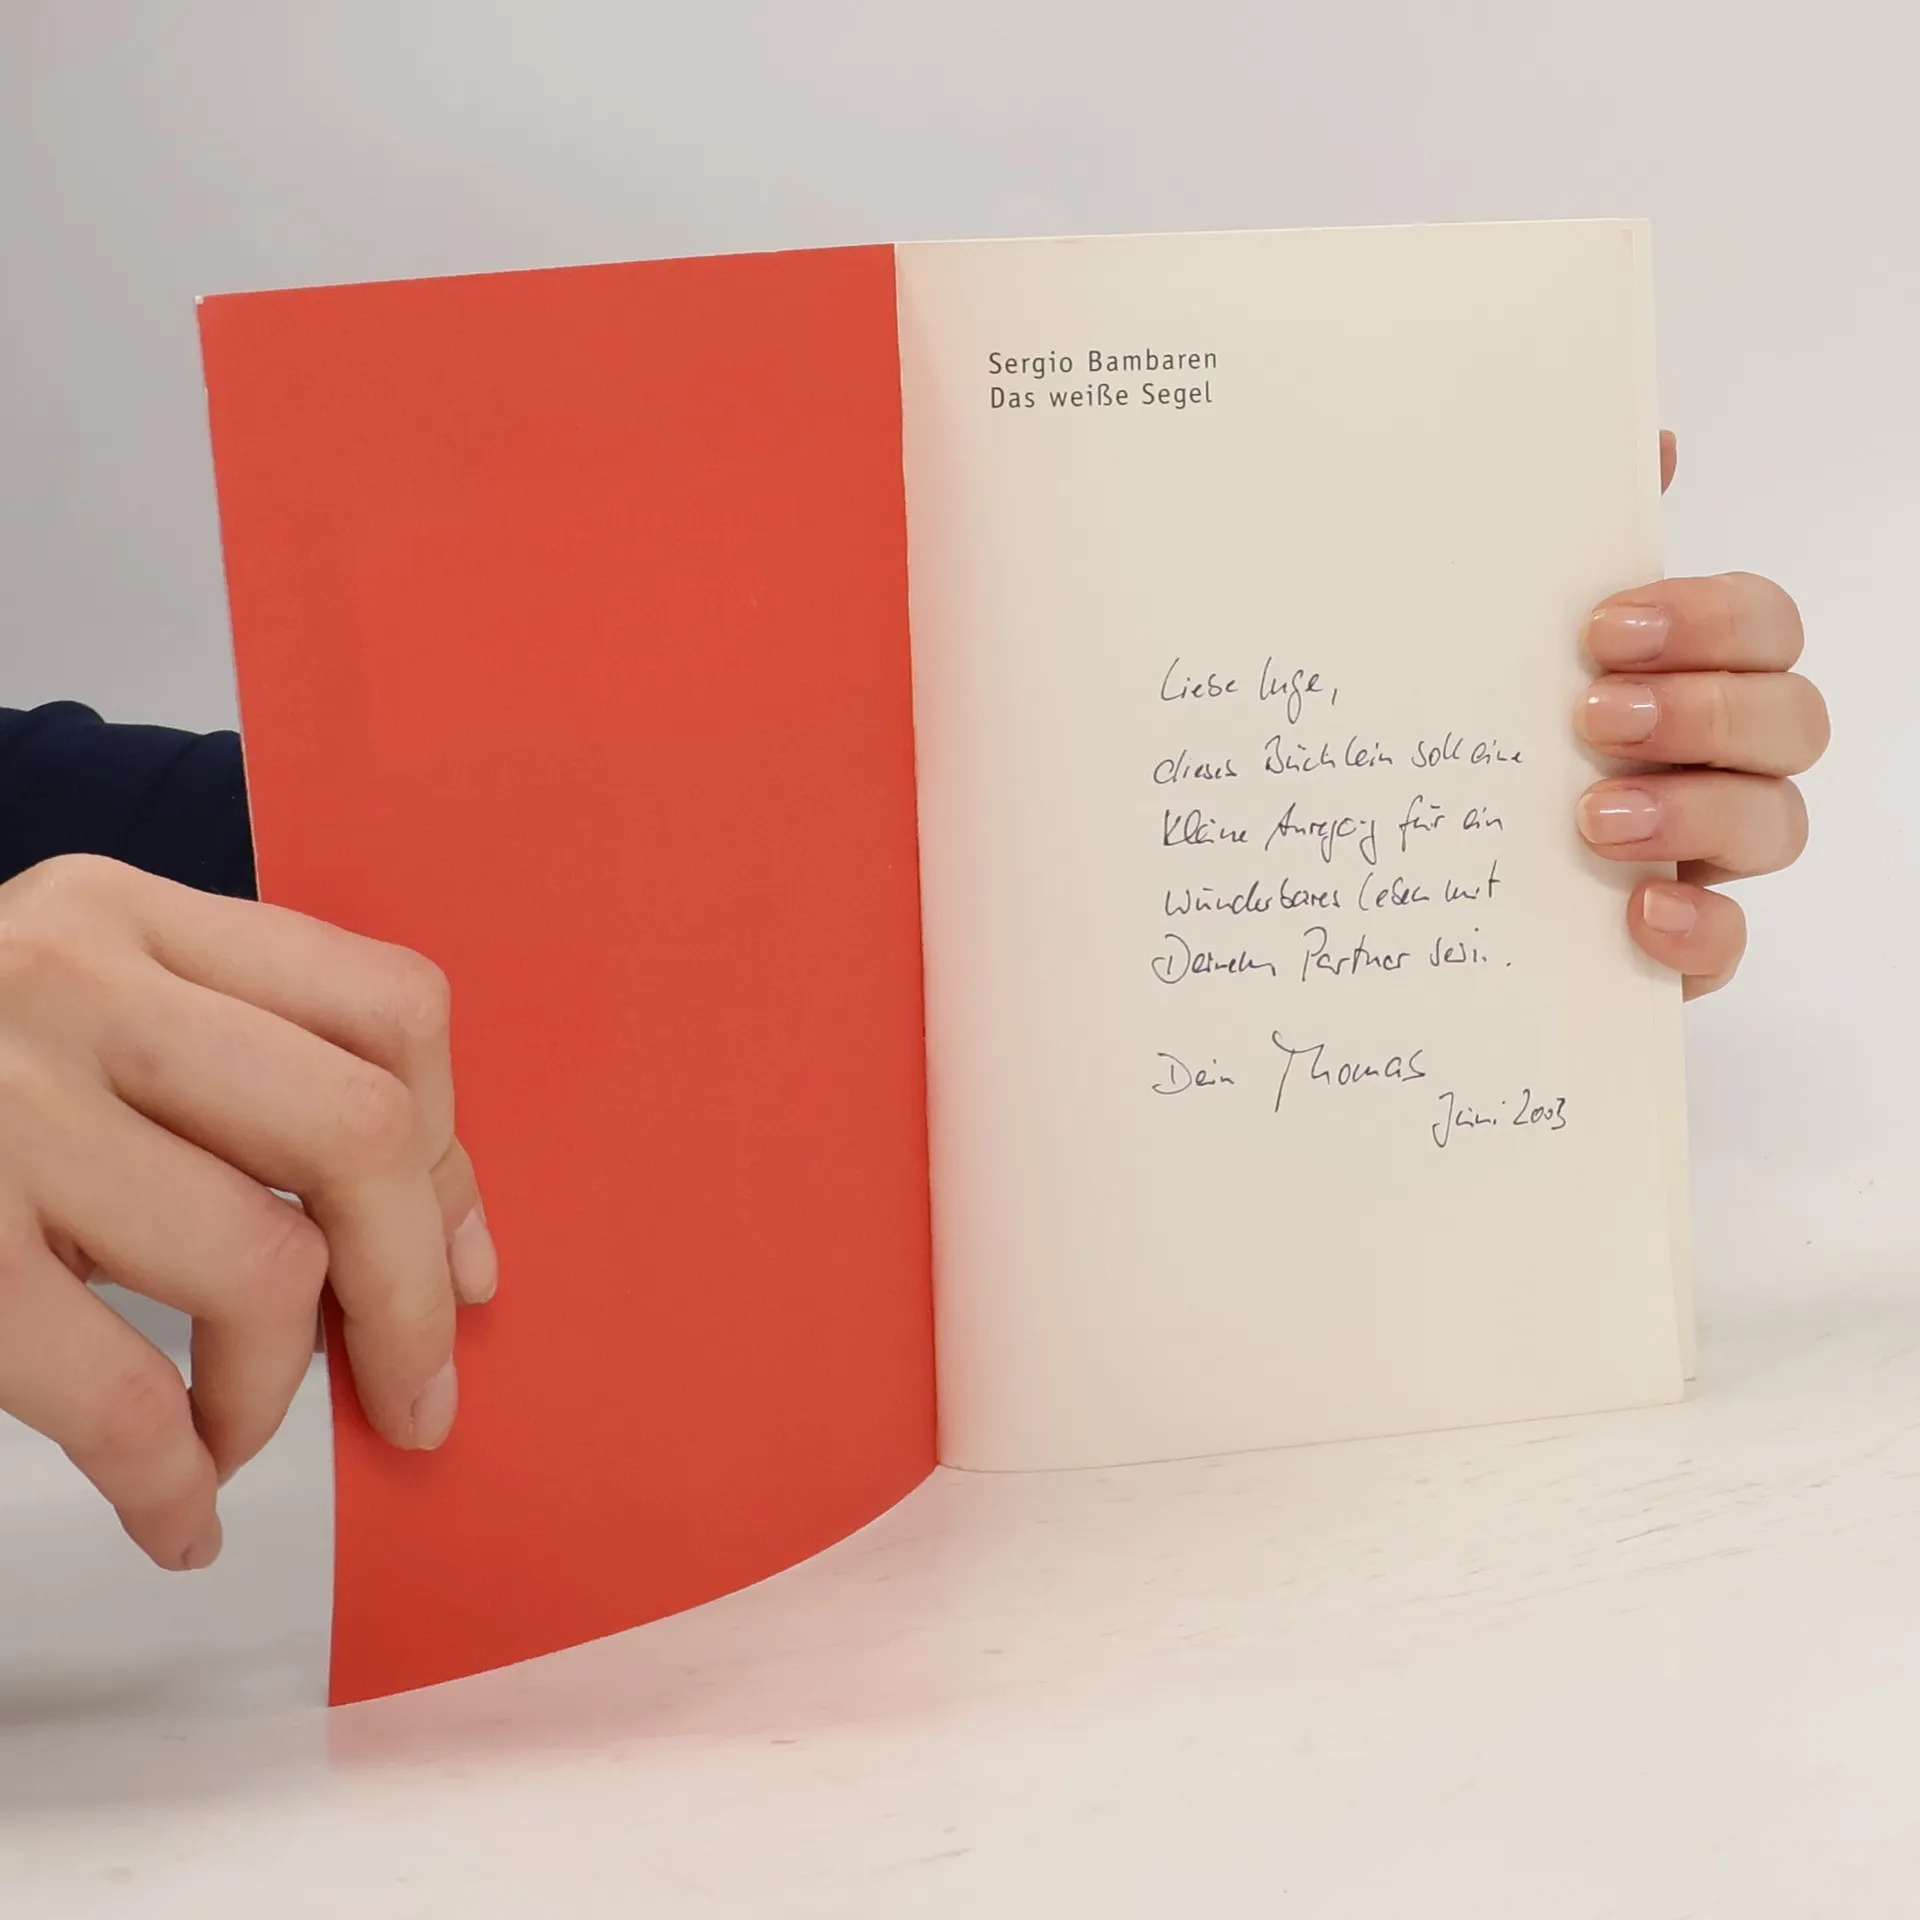 Sergio Bambaren
Das weiße Segel
Liebe Inge,
dieses Büchlein soll eine
kleine Anregung für ein
wunderbares Leben mit
Deinem Partner sein.
Dein Thomas
Juni 2003